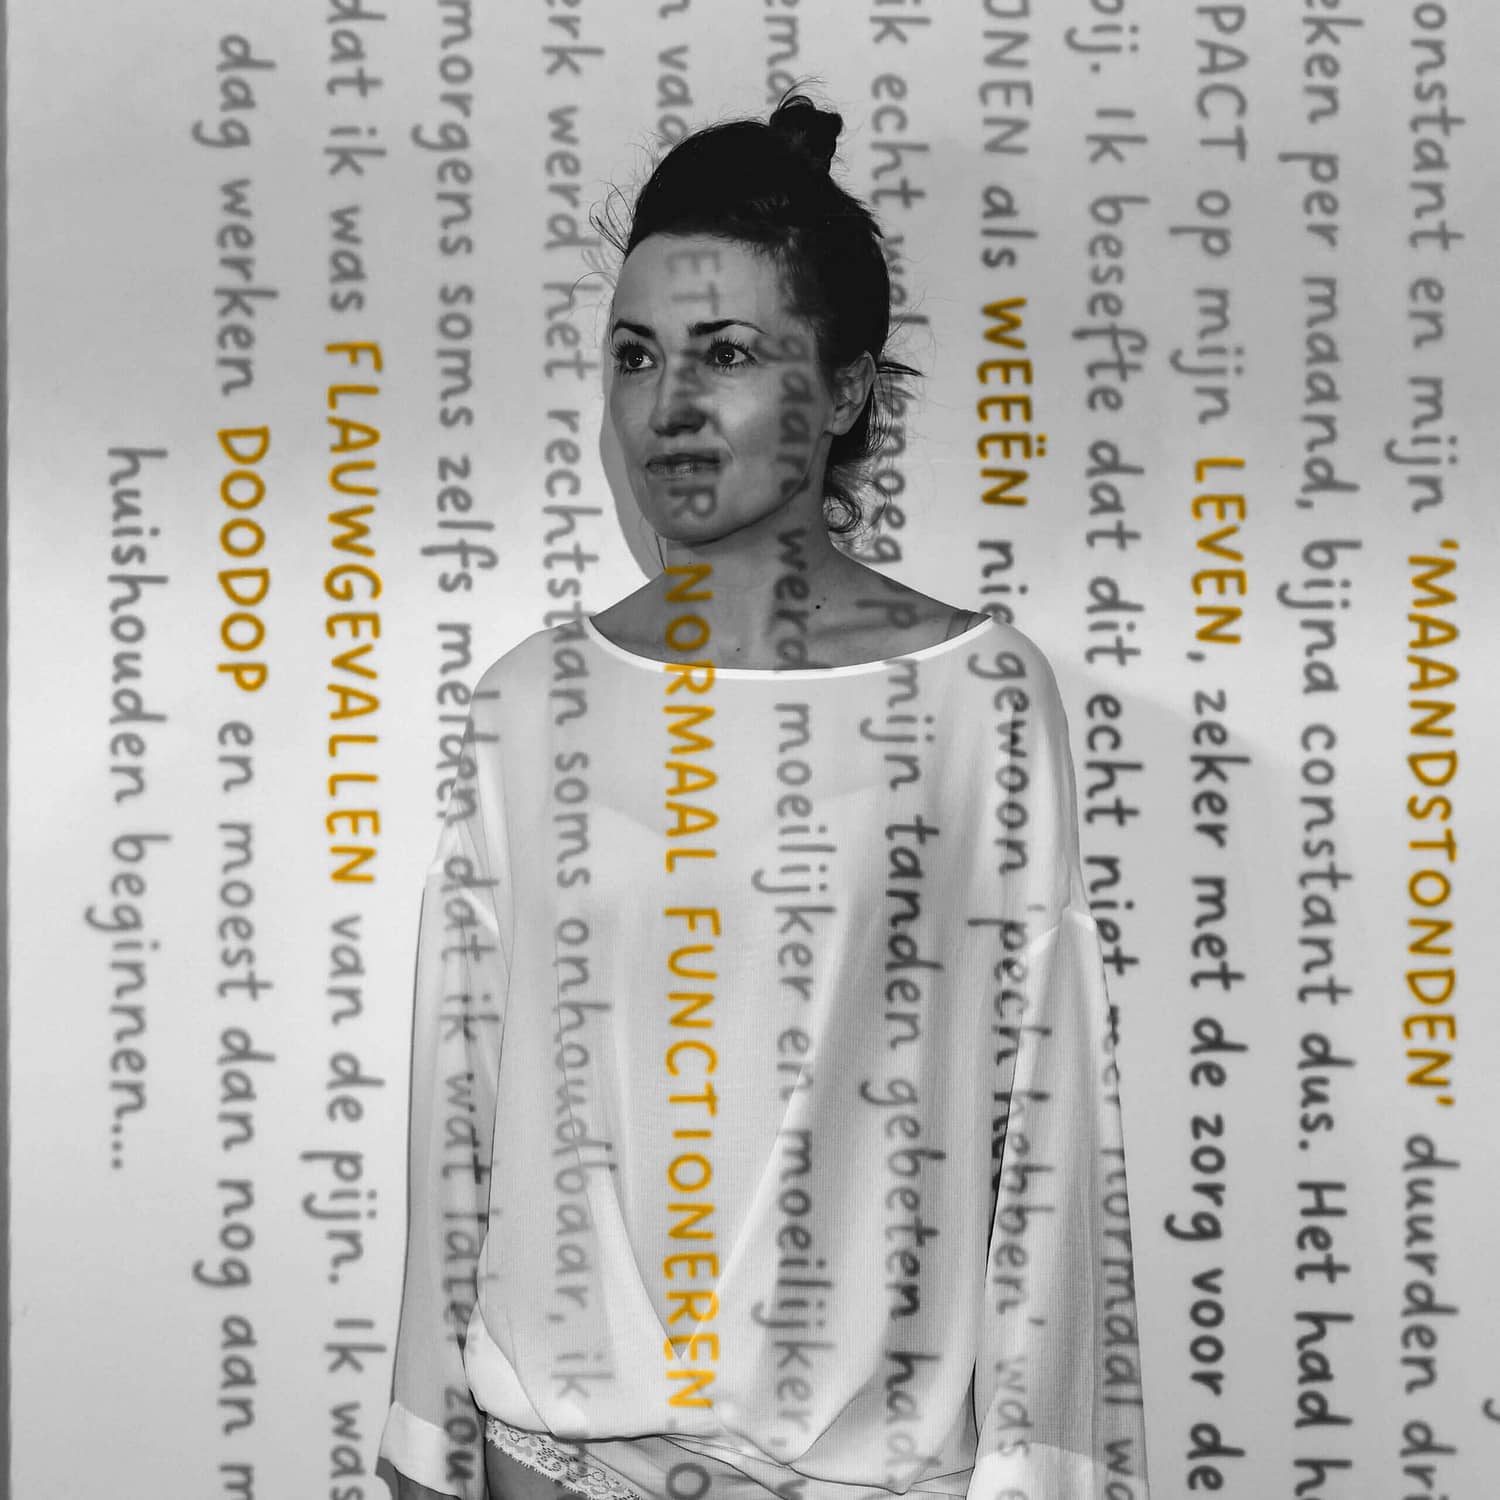 onstant en mijn 'MAANDSTONDEN' duurden dri
eken per maand, bijna constant dus. Het had h
PACT op mijn LEVEN, zeker met de zorg voor de
pij. Ik besefte dat dit echt niet meer normaal wa
JNEN als WEEËN gewoon 'pech hebben' was e
ik echt wel genoeg op mijn tanden gebeten had
werd moeilijker en moeilijker, w
NORMAAL FUNCTIONEREN. O
erk werd het rechtstaan soms onhoudbaar, ik
morgens soms zelfs melden dat ik wat later zou
dat ik was FLAUWGEVALLEN van de pijn. Ik was
dag werken DOODOP en moest dan nog aan m
huishouden beginnen...